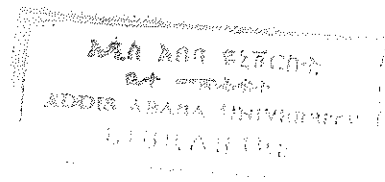 አዲስ አበባ ዩኒቨርሲቲ
ቤተ መጻሕፍት
ADDIS ABABA UNIVERSITY
LIBRARIES